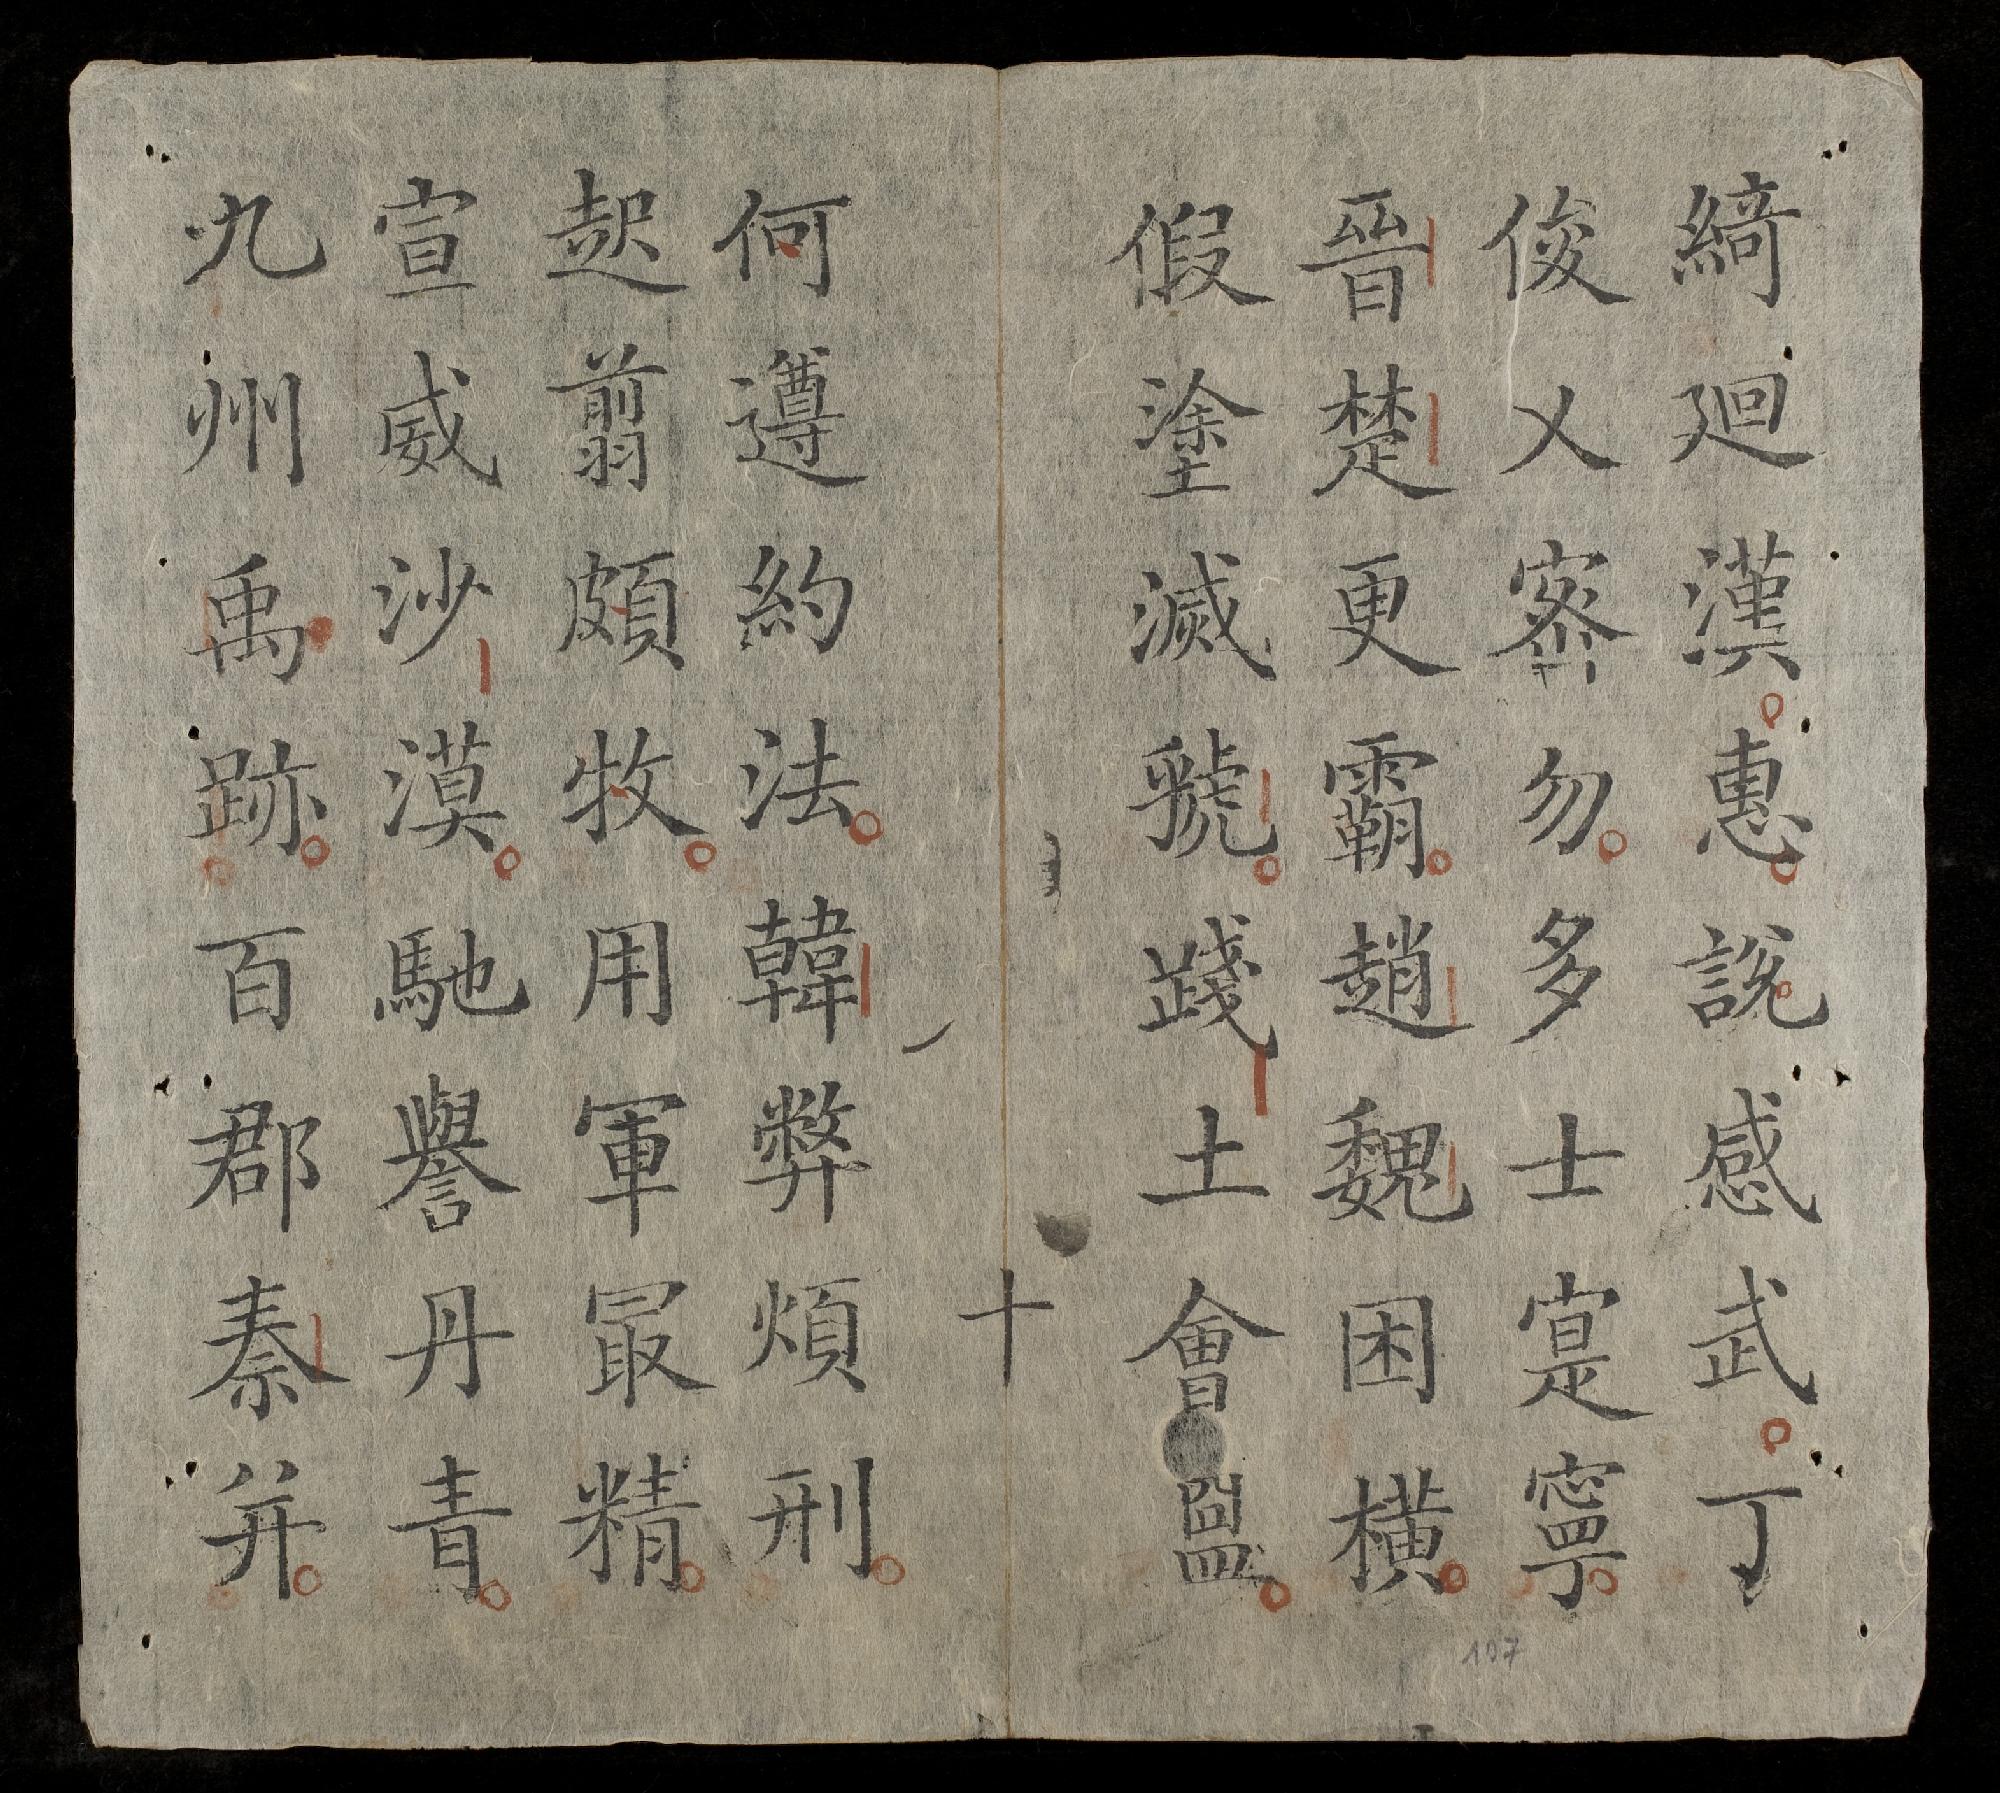 綺廻漢惠說感武丁
俊乂密勿多士寔寧
晉楚更霸趙魏困橫
假塗滅虢踐土會盟
十
何遵約法韓弊煩刑
起翦頗牧用軍最精
宣威沙漠馳譽丹青
九州禹跡百郡秦并
107